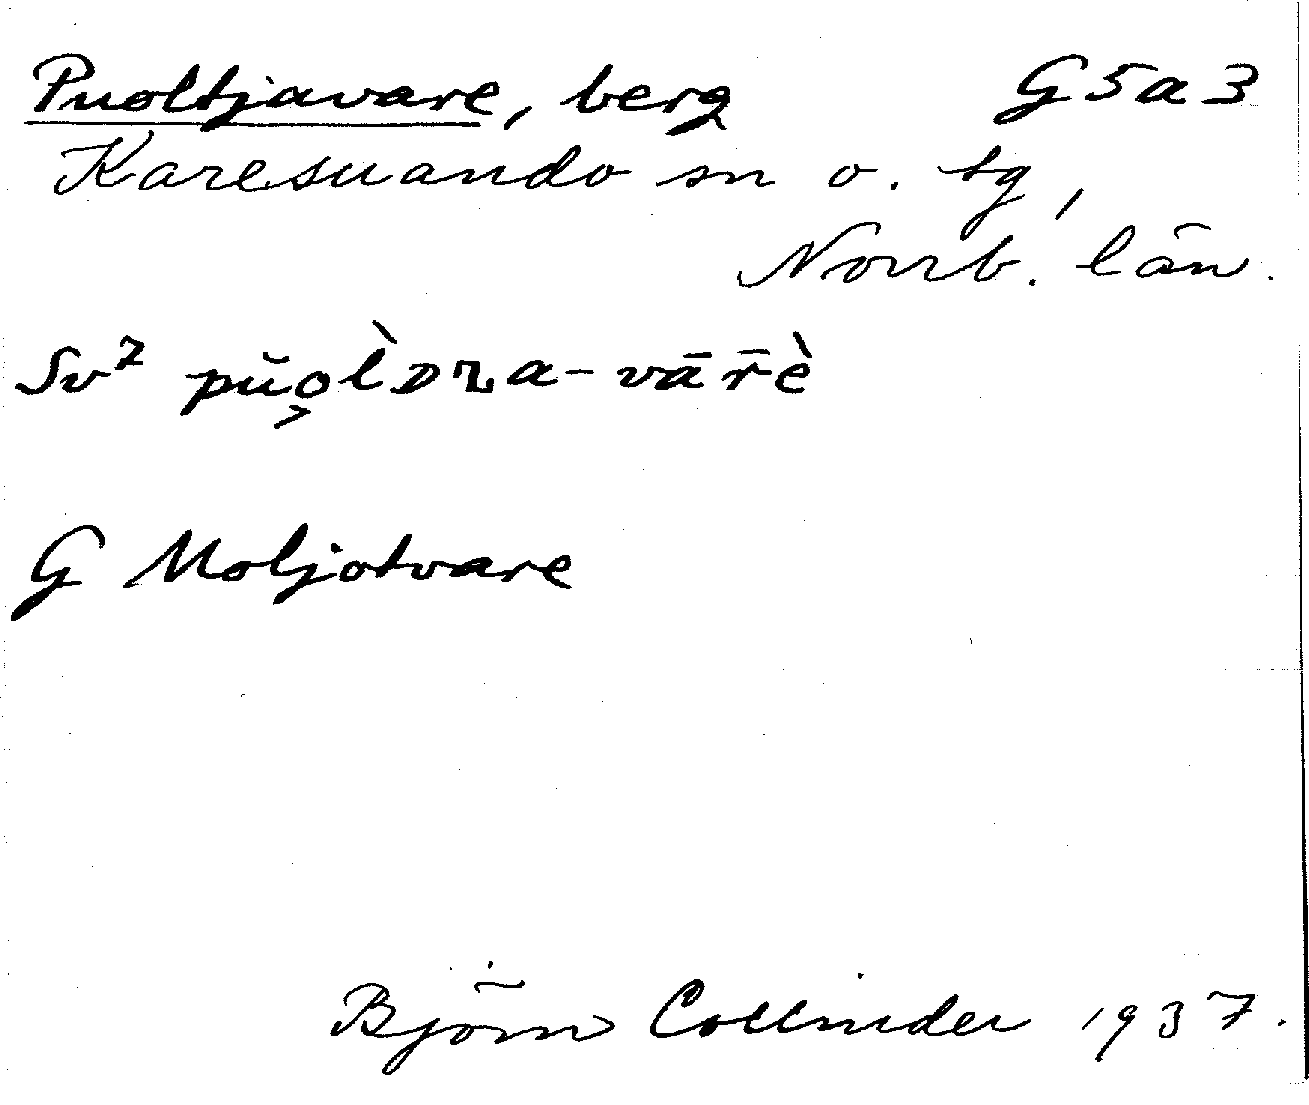 Puoltjavare, berg G5a3
Karesuando sn o. tg,
Norrb. län.
Sv⁷ pŭo̭l̀ᴅᴢa-vār̄ὲ
G Moljotvare
Björn Collinder 1937.